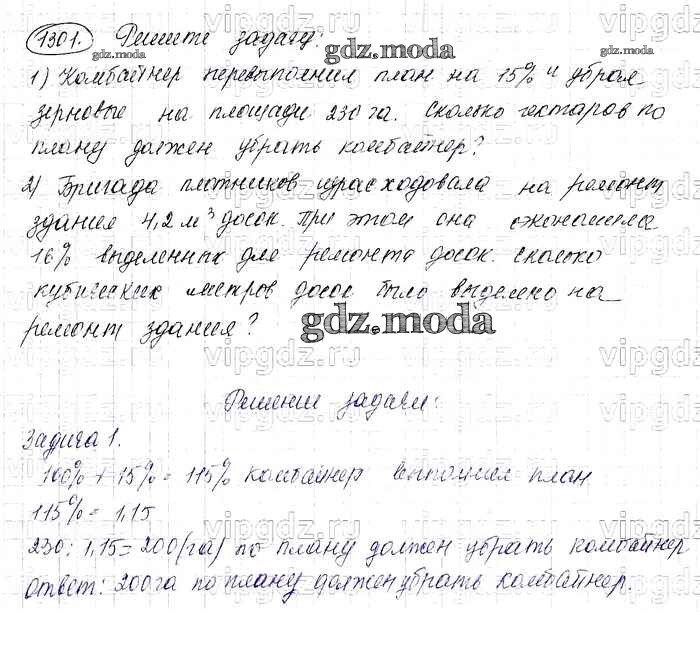 1301. Решите задачу:
gdz.moda
1) Комбайнер перевыполнил план на 15% и убрал
зерновые на площади 230 га. Сколько гектаров по
плану должен убрать комбайнер?
2) Бригада плотников израсходовала на ремонт
здания 4,2 м³ досок. При этом она экономила
16% выделенных для ремонта досок. Сколько
кубических метров досок было выделено на
ремонт здания?
gdz.moda
Решение задачи:
Задача 1.
100% + 15% = 115% комбайнер выполнил план
115% = 1,15
230 : 1,15 = 200 (га) по плану должен убрать комбайнер
Ответ: 200 га по плану должен убрать комбайнер.